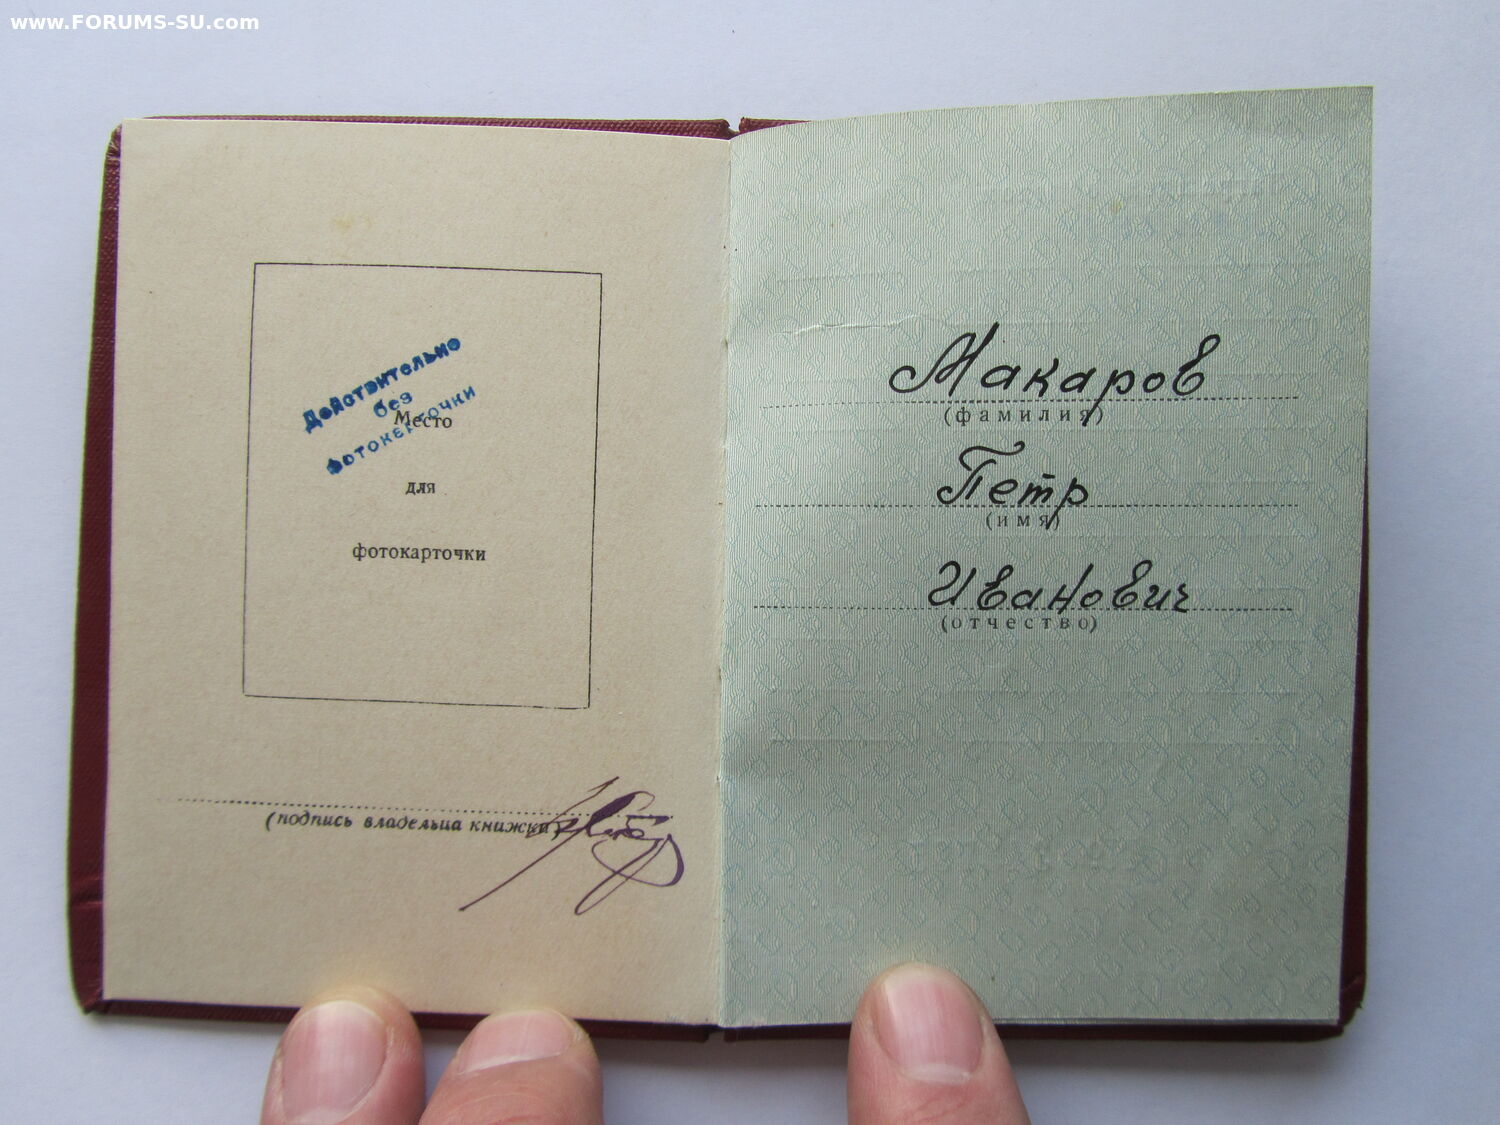 www.FORUMS-SU.com
Действительно
без
фотокарточки
Место
для
фотокарточки
(подпись владельца книжки)
Макаров
(фамилия)
Петр
(имя)
Иванович
(отчество)